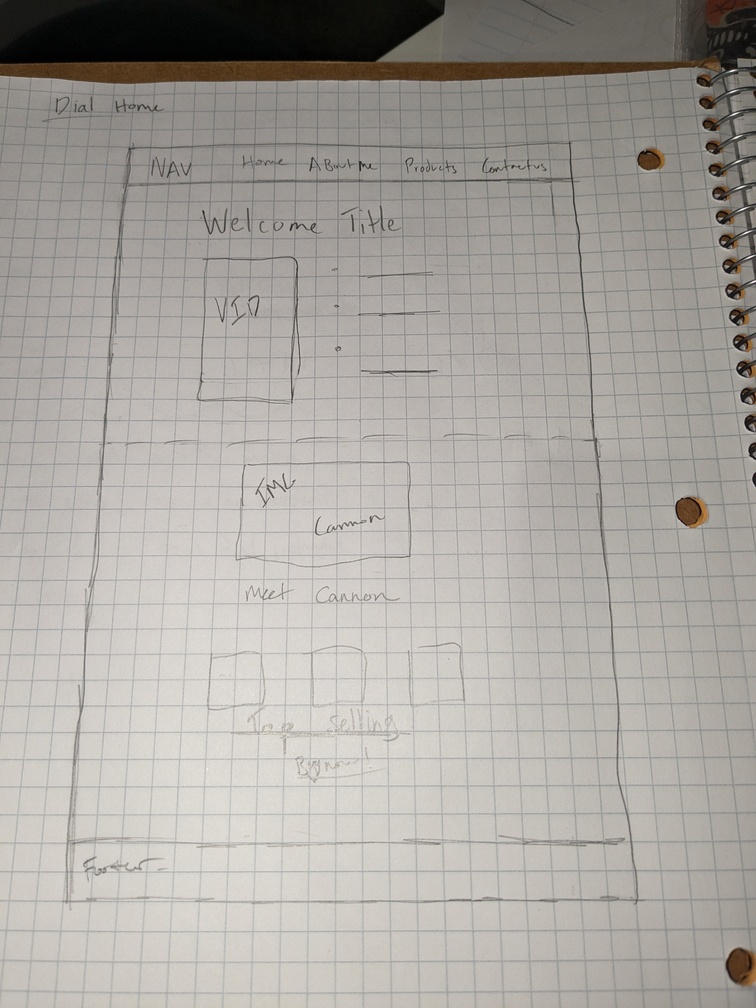 Dial Home
NAV Home About me Products Contact us
Welcome Title
VID
IMG
Cannon
Meet Cannon
Top Selling
Buy now!
Footer